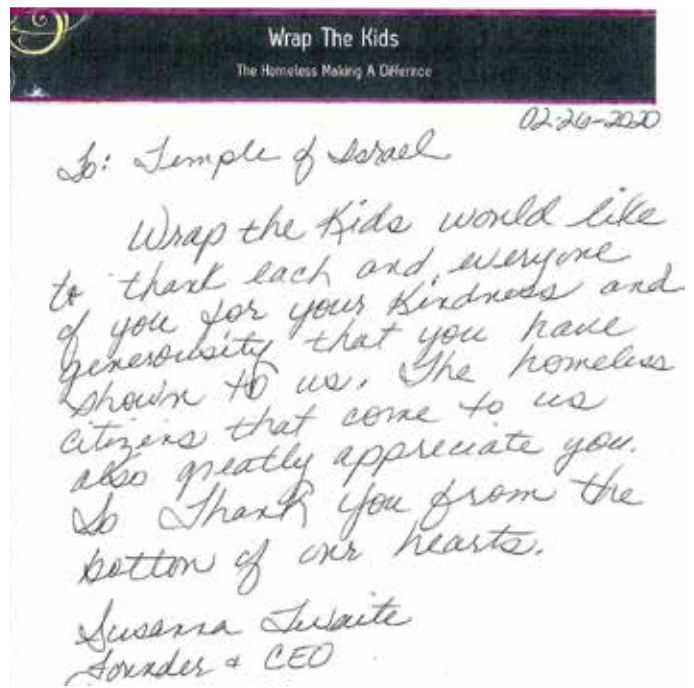 Wrap The Kids
The Homeless Making A Differnce
02-26-2020
To: Temple of Israel
Wrap the Kids would like
to thank each and everyone
of you for your Kindness and
generousity that you have
shown to us. The homeless
citizens that come to us
also greatly appreciate you.
So Thank you from the
bottom of our hearts.
Susanna Twaite
Founder & CEO